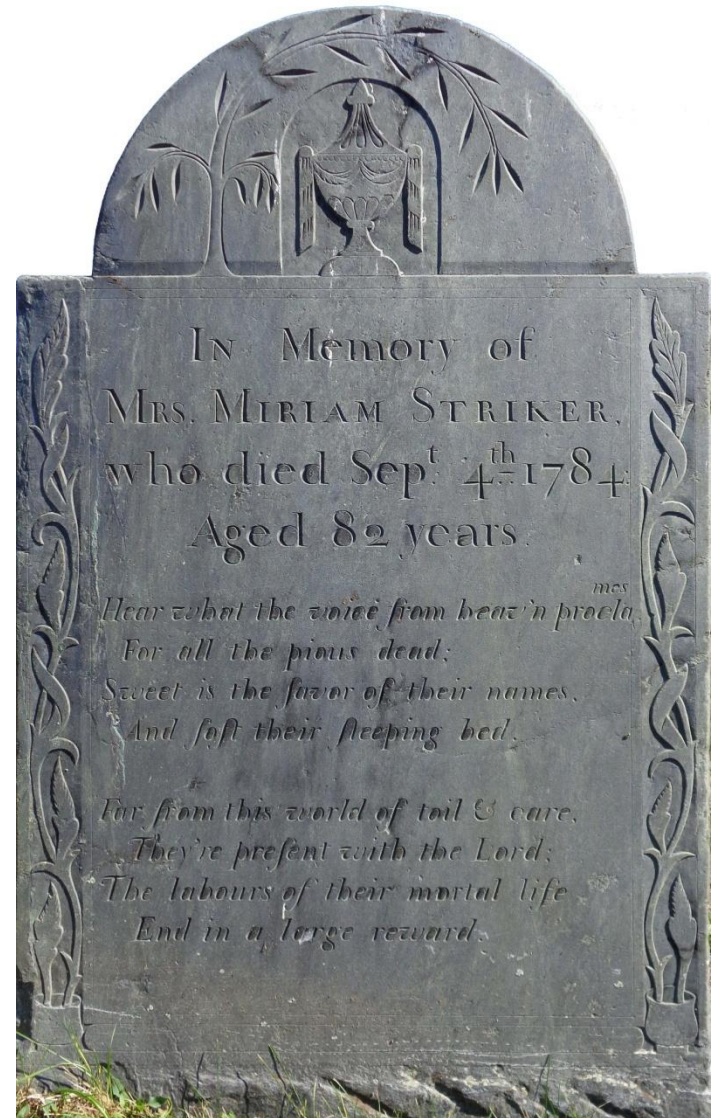 In Memory of
Mrs. Miriam Striker,
who died Sepᵗ. 4ᵗʰ 1784.
Aged 82 years.
Hear what the voice from heav'n proclames
For all the pious dead;
Sweet is the savor of their names,
And soft their sleeping bed.
Far from this world of toil & care,
They're present with the Lord;
The labours of their mortal life
End in a large reward.